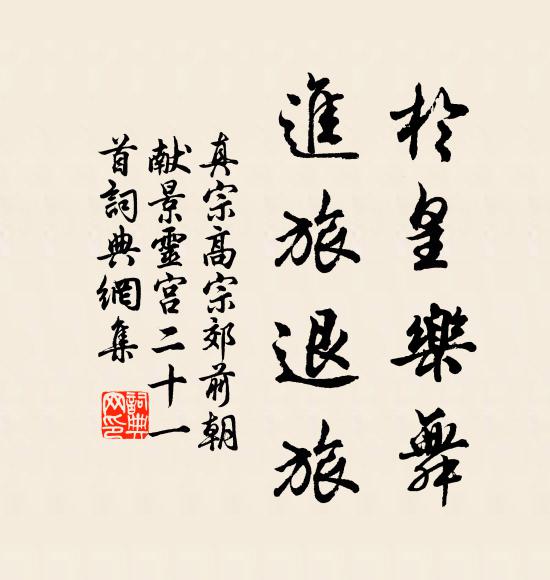 於皇樂舞
進旅退旅
真宗高宗郊前朝
献景靈宮二十一
首詞典網集
詞典
网印